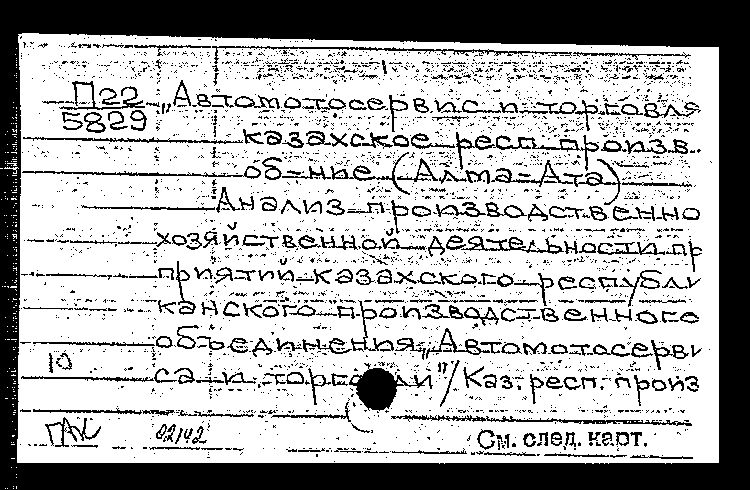 П22
5829
„Автомотосервис и торговля
казахское респ. произв.
об-ние (Алма-Ата)
Анализ производственно
хозяйственной деятельности пр
приятий казахского республи
канского производственного
объединения „Автомотосерви
са и торговли"/Каз. респ. произ
10
82142
См. след. карт.